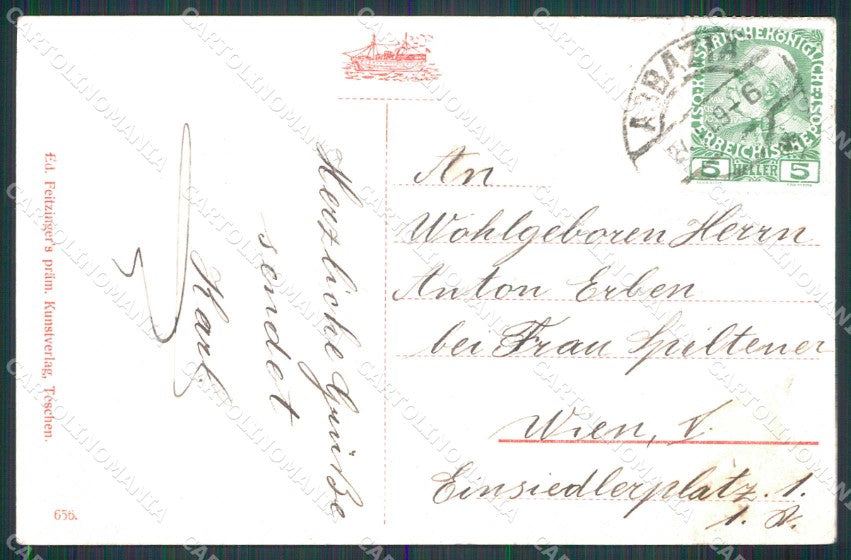 Herzliche Grüße
sendet
Karl
An
Wohlgeboren Herrn
Anton Erben
bei Frau Spiltener
Wien, V.
Einsiedlerplatz. 1.
Ed. Feitzinger's präm. Kunstverlag, Teschen.
656.
ABBAZIA
5 HELLER 5
CARTOLINOMANIA